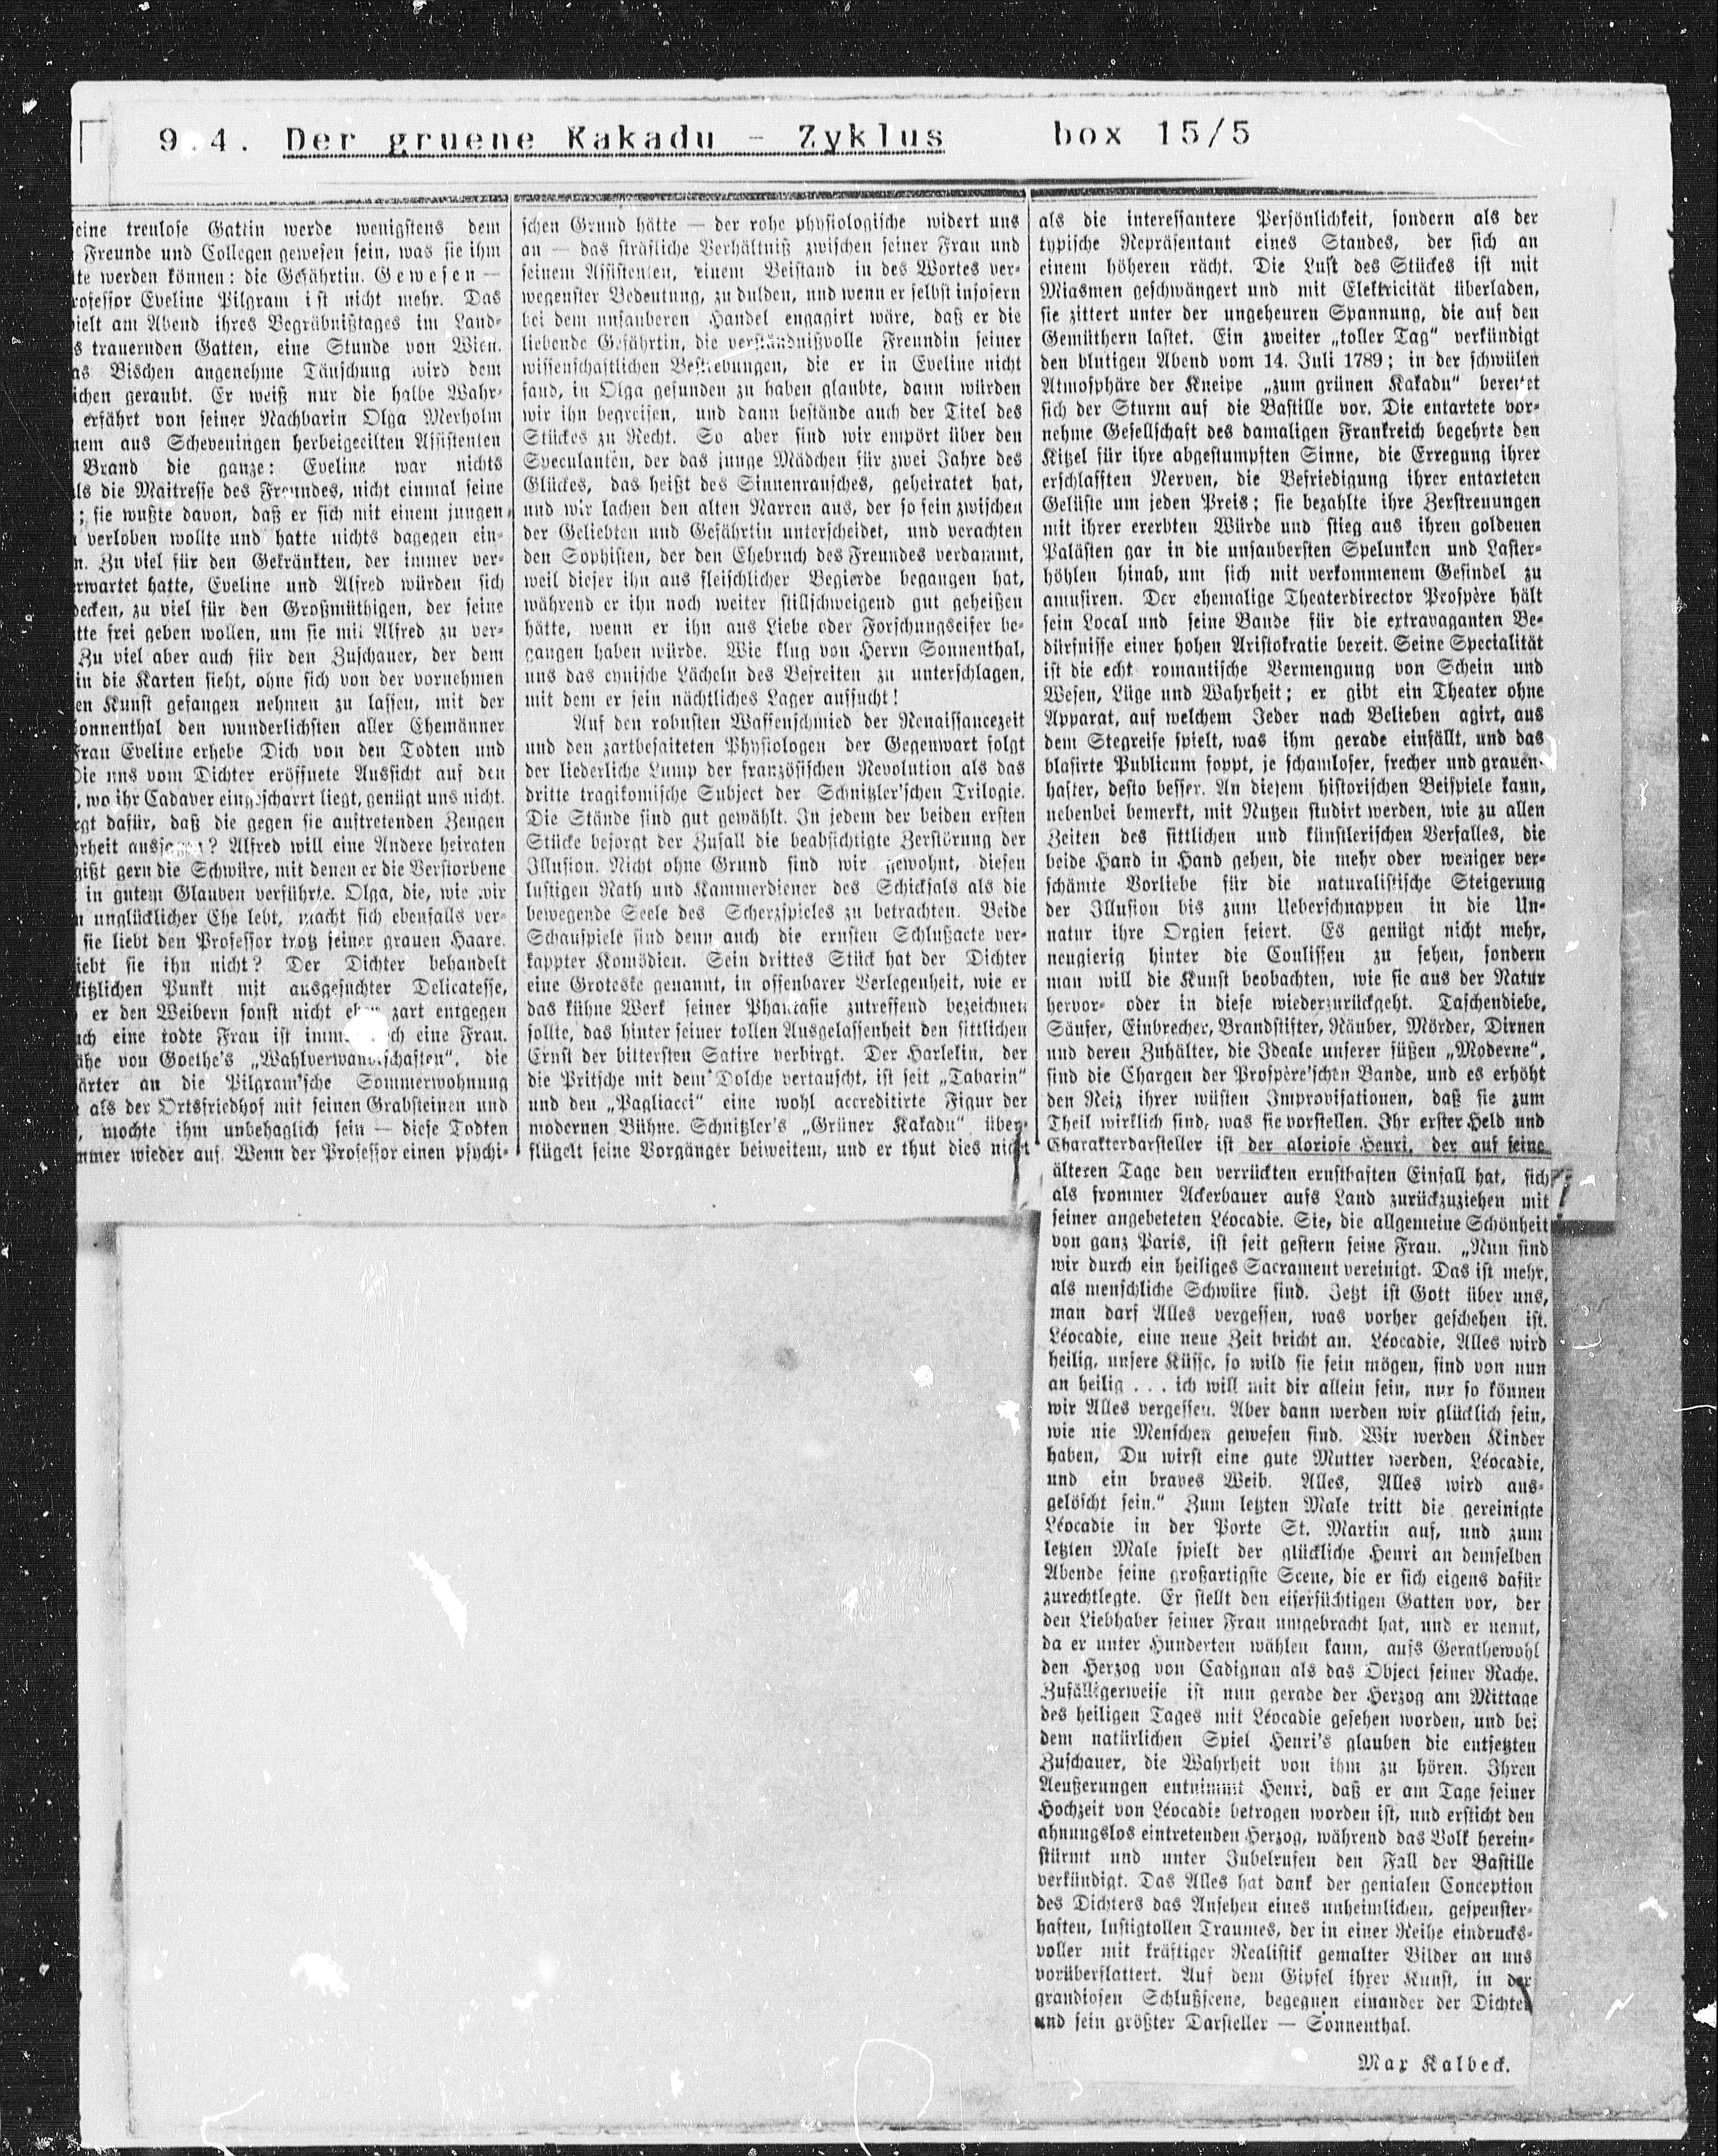 9.4. Der gruene Kakadu - Zyklus box 15/5
eine treulose Gattin werde wenigstens dem
Freunde und Collegen gewesen sein, was sie ihm
te werden können: die Gefährtin. Gewesen —
rofessor Eveline Pilgram ist nicht mehr. Das
ielt am Abend ihres Begräbnißtages im Land-
s trauernden Gatten, eine Stunde von Wien.
as Bischen angenehme Täuschung wird dem
ichen geraubt. Er weiß nur die halbe Wahr-
erfährt von seiner Nachbarin Olga Merholm
nem aus Scheveningen herbeigeeilten Assistenten
Brand die ganze: Eveline war nichts
ls die Maitresse des Freundes, nicht einmal seine
; sie wußte davon, daß er sich mit einem jungen
verloben wollte und hatte nichts dagegen ein-
n. Zu viel für den Gekränkten, der immer ver-
rwartet hatte, Eveline und Alfred würden sich
ecken, zu viel für den Großmüthigen, der seine
tte frei geben wollen, um sie mit Alfred zu ver-
Zu viel aber auch für den Zuschauer, der dem
in die Karten sieht, ohne sich von der vornehmen
en Kunst gefangen nehmen zu lassen, mit der
onnenthal den wunderlichsten aller Ehemänner
Frau Eveline erhebe Dich von den Todten und
Die uns vom Dichter eröffnete Aussicht auf den
, wo ihr Cadaver eingescharrt liegt, genügt uns nicht.
rgt dafür, daß die gegen sie auftretenden Zeugen
rheit aussagen? Alfred will eine Andere heiraten
gißt gern die Schwüre, mit denen er die Verstorbene
in gutem Glauben verführte. Olga, die, wie wir
n unglücklicher Ehe lebt, macht sich ebenfalls ver-
sie liebt den Professor trotz seiner grauen Haare.
iebt sie ihn nicht? Der Dichter behandelt
kitzlichen Punkt mit ausgesuchter Delicatesse,
er den Weibern sonst nicht eben zart entgegen
uch eine todte Frau ist immer noch eine Frau.
ähe von Goethe's „Wahlverwandtschaften", die
ärter an die Pilgram'sche Sommerwohnung
als der Ortsfriedhof mit seinen Grabsteinen und
, mochte ihm unbehaglich sein — diese Todten
mmer wieder auf. Wenn der Professor einen psychi-
schen Grund hätte — der rohe physiologische widert uns
an — das sträfliche Verhältniß zwischen seiner Frau und
seinem Assistenten, einem Beistand in des Wortes ver-
wegenster Bedeutung, zu dulden, und wenn er selbst insofern
bei dem unsauberen Handel engagirt wäre, daß er die
liebende Gefährtin, die verständnißvolle Freundin seiner
wissenschaftlichen Bestrebungen, die er in Eveline nicht
fand, in Olga gefunden zu haben glaubte, dann würden
wir ihn begreifen, und dann bestände auch der Titel des
Stückes zu Recht. So aber sind wir empört über den
Speculanten, der das junge Mädchen für zwei Jahre des
Glückes, das heißt des Sinnenrausches, geheiratet hat,
und wir lachen den alten Narren aus, der so fein zwischen
der Geliebten und Gefährtin unterscheidet, und verachten
den Sophisten, der den Ehebruch des Freundes verdammt,
weil dieser ihn aus fleischlicher Begierde begangen hat,
während er ihn noch weiter stillschweigend gut geheißen
hätte, wenn er ihn aus Liebe oder Forschungseifer be-
gangen haben würde. Wie klug von Herrn Sonnenthal,
uns das cynische Lächeln des Befreiten zu unterschlagen,
mit dem er sein nächtliches Lager aufsucht!
Auf den robusten Waffenschmied der Renaissancezeit
und den zartbesaiteten Physiologen der Gegenwart folgt
der liederliche Lump der französischen Revolution als das
dritte tragikomische Subject der Schnitzler'schen Trilogie.
Die Stände sind gut gewählt. In jedem der beiden ersten
Stücke besorgt der Zufall die beabsichtigte Zerstörung der
Illusion. Nicht ohne Grund sind wir gewohnt, diesen
lustigen Rath und Kammerdiener des Schicksals als die
bewegende Seele des Scherzspieles zu betrachten. Beide
Schauspiele sind denn auch die ernsten Schlußacte ver-
kappter Komödien. Sein drittes Stück hat der Dichter
eine Groteske genannt, in offenbarer Verlegenheit, wie er
das kühne Werk seiner Phantasie zutreffend bezeichnen
sollte, das hinter seiner tollen Ausgelassenheit den sittlichen
Ernst der bittersten Satire verbirgt. Der Harlekin, der
die Pritsche mit dem Dolche vertauscht, ist seit „Tabarin"
und den „Pagliacci" eine wohl accreditirte Figur der
modernen Bühne. Schnitzler's „Grüner Kakadu" über-
flügelt seine Vorgänger beiweitem, und er thut dies nicht
als die interessantere Persönlichkeit, sondern als der
typische Repräsentant eines Standes, der sich an
einem höheren rächt. Die Luft des Stückes ist mit
Miasmen geschwängert und mit Elektricität überladen,
sie zittert unter der ungeheuren Spannung, die auf den
Gemüthern lastet. Ein zweiter „toller Tag" verkündigt
den blutigen Abend vom 14. Juli 1789; in der schwülen
Atmosphäre der Kneipe „zum grünen Kakadu" bereitet
sich der Sturm auf die Bastille vor. Die entartete vor-
nehme Gesellschaft des damaligen Frankreich begehrte den
Kitzel für ihre abgestumpften Sinne, die Erregung ihrer
erschlafften Nerven, die Befriedigung ihrer entarteten
Gelüste um jeden Preis; sie bezahlte ihre Zerstreuungen
mit ihrer ererbten Würde und stieg aus ihren goldenen
Palästen gar in die unsaubersten Spelunken und Laster-
höhlen hinab, um sich mit verkommenem Gesindel zu
amusiren. Der ehemalige Theaterdirector Prospère hält
sein Local und seine Bande für die extravaganten Be-
dürfnisse einer hohen Aristokratie bereit. Seine Specialität
ist die echt romantische Vermengung von Schein und
Wesen, Lüge und Wahrheit; er gibt ein Theater ohne
Apparat, auf welchem Jeder nach Belieben agirt, aus
dem Stegreife spielt, was ihm gerade einfällt, und das
blasirte Publicum foppt, je schamloser, frecher und grauen-
hafter, desto besser. An diesem historischen Beispiele kann,
nebenbei bemerkt, mit Nutzen studirt werden, wie zu allen
Zeiten des sittlichen und künstlerischen Verfalles, die
beide Hand in Hand gehen, die mehr oder weniger ver-
schämte Vorliebe für die naturalistische Steigerung
der Illusion bis zum Ueberschnappen in die Un-
natur ihre Orgien feiert. Es genügt nicht mehr,
neugierig hinter die Coulissen zu sehen, sondern
man will die Kunst beobachten, wie sie aus der Natur
hervor- oder in diese wiederzurückgeht. Taschendiebe,
Säufer, Einbrecher, Brandstifter, Räuber, Mörder, Dirnen
und deren Zuhälter, die Ideale unserer süßen „Moderne",
sind die Chargen der Prospère'schen Bande, und es erhöht
den Reiz ihrer wüsten Improvisationen, daß sie zum
Theil wirklich sind, was sie vorstellen. Ihr erster Held und
Charakterdarsteller ist der gloriose Henri, der auf seine
älteren Tage den verrückten ernsthaften Einfall hat, sich
als frommer Ackerbauer aufs Land zurückzuziehen mit
seiner angebeteten Léocadie. Sie, die allgemeine Schönheit
von ganz Paris, ist seit gestern seine Frau. „Nun sind
wir durch ein heiliges Sacrament vereinigt. Das ist mehr,
als menschliche Schwüre sind. Jetzt ist Gott über uns,
man darf Alles vergessen, was vorher geschehen ist.
Léocadie, eine neue Zeit bricht an. Léocadie, Alles wird
heilig, unsere Küsse, so wild sie sein mögen, sind von nun
an heilig . . . ich will mit dir allein sein, nur so können
wir Alles vergessen. Aber dann werden wir glücklich sein,
wie nie Menschen gewesen sind. Wir werden Kinder
haben, Du wirst eine gute Mutter werden, Léocadie,
und ein braves Weib. Alles, Alles wird aus-
gelöscht sein." Zum letzten Male tritt die gereinigte
Léocadie in der Porte St. Martin auf, und zum
letzten Male spielt der glückliche Henri an demselben
Abende seine großartigste Scene, die er sich eigens dafür
zurechtlegte. Er stellt den eifersüchtigen Gatten vor, der
den Liebhaber seiner Frau umgebracht hat, und er nennt,
da er unter Hunderten wählen kann, aufs Gerathewohl
den Herzog von Cadignan als das Object seiner Rache.
Zufälligerweise ist nun gerade der Herzog am Mittage
des heiligen Tages mit Léocadie gesehen worden, und bei
dem natürlichen Spiel Henri's glauben die entsetzten
Zuschauer, die Wahrheit von ihm zu hören. Ihren
Aeußerungen entnimmt Henri, daß er am Tage seiner
Hochzeit von Léocadie betrogen worden ist, und ersticht den
ahnungslos eintretenden Herzog, während das Volk herein-
stürmt und unter Jubelrufen den Fall der Bastille
verkündigt. Das Alles hat dank der genialen Conception
des Dichters das Ansehen eines unheimlichen, gespenster-
haften, lustigtollen Traumes, der in einer Reihe eindrucks-
voller mit kräftiger Realistik gemalter Bilder an uns
vorüberflattert. Auf dem Gipfel ihrer Kunst, in der
grandiosen Schlußscene, begegnen einander der Dichter
und sein größter Darsteller — Sonnenthal.
Max Kalbeck.